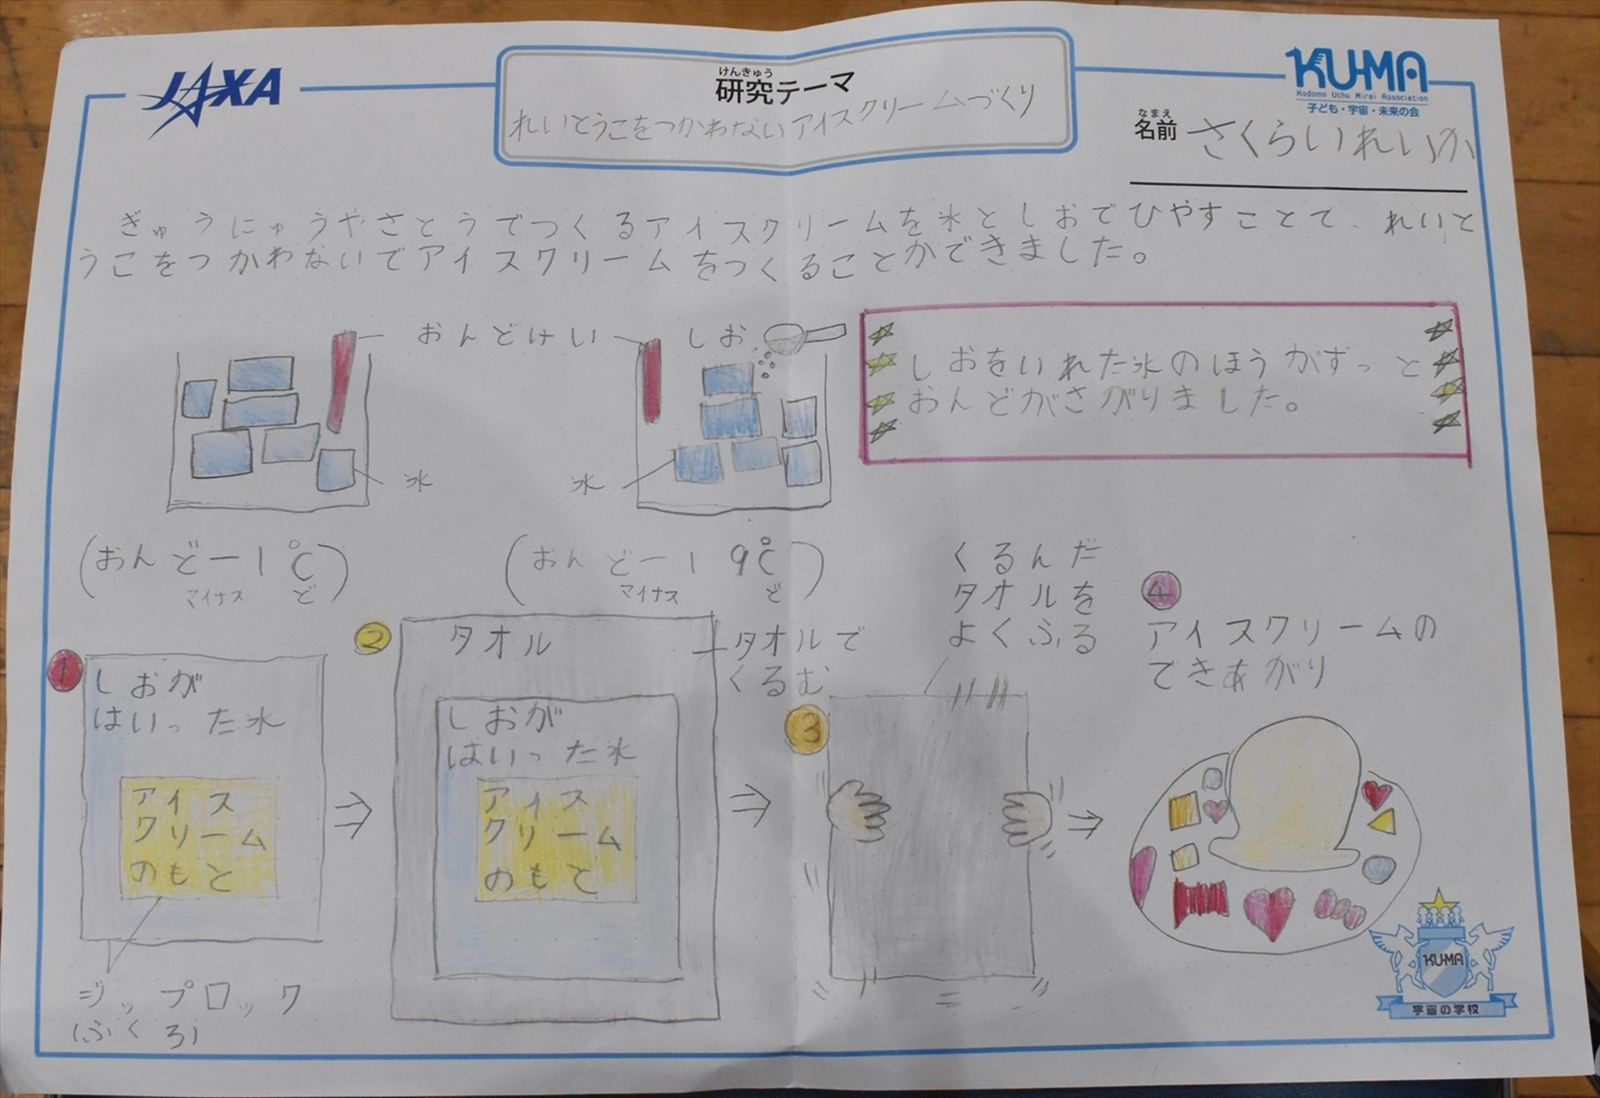 JAXA
けんきゅう
研究テーマ
れいとうこをつかわないアイスクリームづくり
KU-MA
Kodomo Uchu Mirai Association
子ども・宇宙・未来の会
なまえ
名前 さくらいれいか
ぎゅうにゅうやさとうでつくるアイスクリームを氷としおでひやすことで、れいと
うこをつかわないでアイスクリームをつくることができました。
おんどけい
しお
氷
氷
しおをいれた氷のほうがずっと
おんどがさがりました。
(おんどー1℃)
マイナス ど
(おんどー19℃)
マイナス ど
1
しおが
はいった氷
アイス
クリーム
のもと
ジップロック
(ふくろ)
2
タオル
タオルで
くるむ
しおが
はいった氷
アイス
クリーム
のもと
3
くるんだ
タオルを
よくふる
4
アイスクリームの
できあがり
KU-MA
宇宙の学校